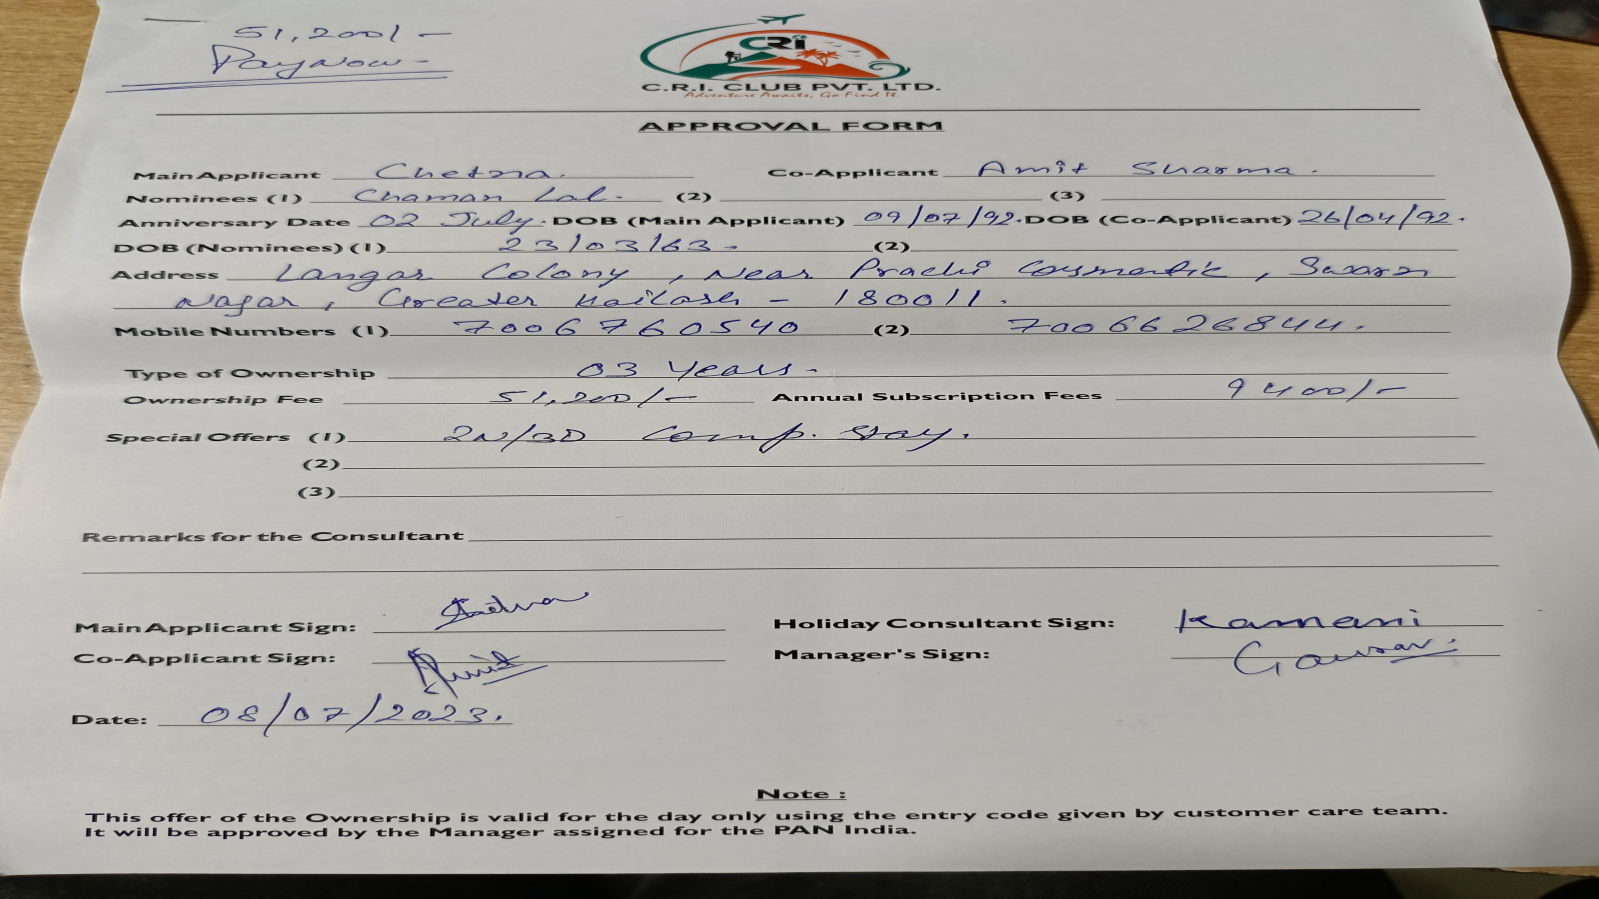 51,200/-
PayNow -
CRi
C.R.I. CLUB PVT. LTD.
Adventure Awaits, Go Find It.
APPROVAL FORM
Main Applicant Chetna. Co-Applicant Amit Sharma.
Nominees (1) Chaman Lal. (2) (3)
Anniversary Date 02 July. DOB (Main Applicant) 09/07/92. DOB (Co-Applicant) 26/04/92.
DOB (Nominees) (1) 23/03/63- (2)
Address Langar Colony, Near Prachi Cosmetic, Swarn
Nagar, Greater Kailash - 180011.
Mobile Numbers (1) 7006760540 (2) 7006626844.
Type of Ownership 03 Years.
Ownership Fee 51,200/- Annual Subscription Fees 9400/-
Special Offers (1) 2N/3D Comp. Stay.
(2)
(3)
Remarks for the Consultant
Main Applicant Sign: Chetna Holiday Consultant Sign: Kamani
Co-Applicant Sign: Amit Manager's Sign: Gaurav.
Date: 08/07/2023.
Note :
This offer of the Ownership is valid for the day only using the entry code given by customer care team.
It will be approved by the Manager assigned for the PAN India.